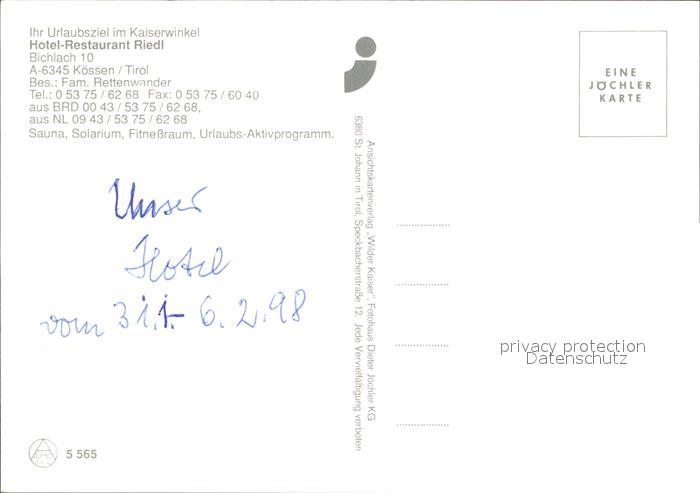 Ihr Urlaubsziel im Kaiserwinkel
Hotel-Restaurant Riedl
Bichlach 10
A-6345 Kössen / Tirol
Bes.: Fam. Rettenwander
Tel.: 0 53 75 / 62 68 Fax: 0 53 75 / 60 40
aus BRD 00 43 / 53 75 / 62 68,
aus NL 09 43 / 53 75 / 62 68
Sauna, Solarium, Fitneßraum, Urlaubs-Aktivprogramm.
Unser
Hotel
vom 31.1.- 6.2.98
5 565
Ansichtskartenverlag „Wilder Kaiser", Fotohaus Dieter Jöchler KG
6380 St. Johann in Tirol, Speckbacherstraße 12. Jede Vervielfältigung verboten
EINE
JÖCHLER
KARTE
privacy protection
Datenschutz